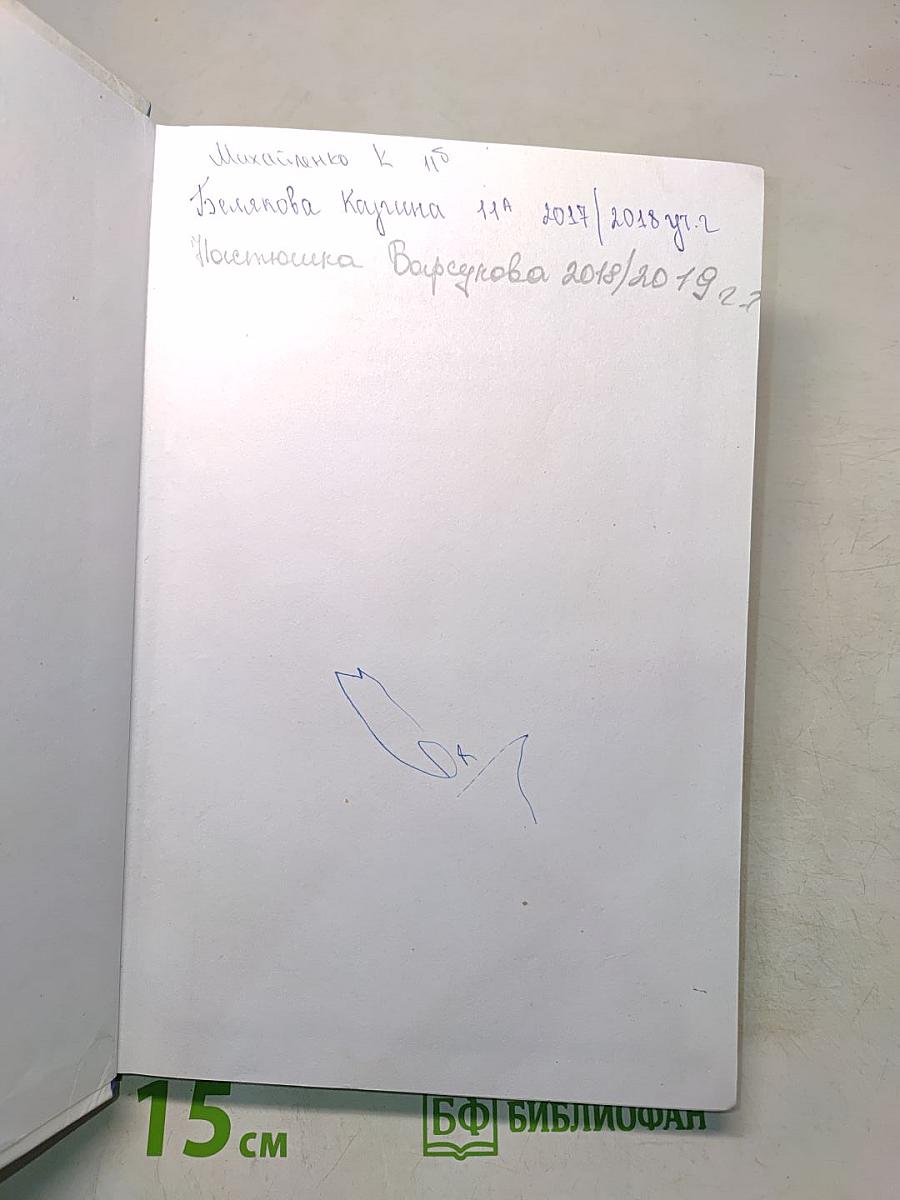 Михайленко К 11б
Белякова Карина 11А 2017/2018 уч.г
Настюшка Барсукова 2018/2019 г.
15 см
БФ БИБЛИОФАН